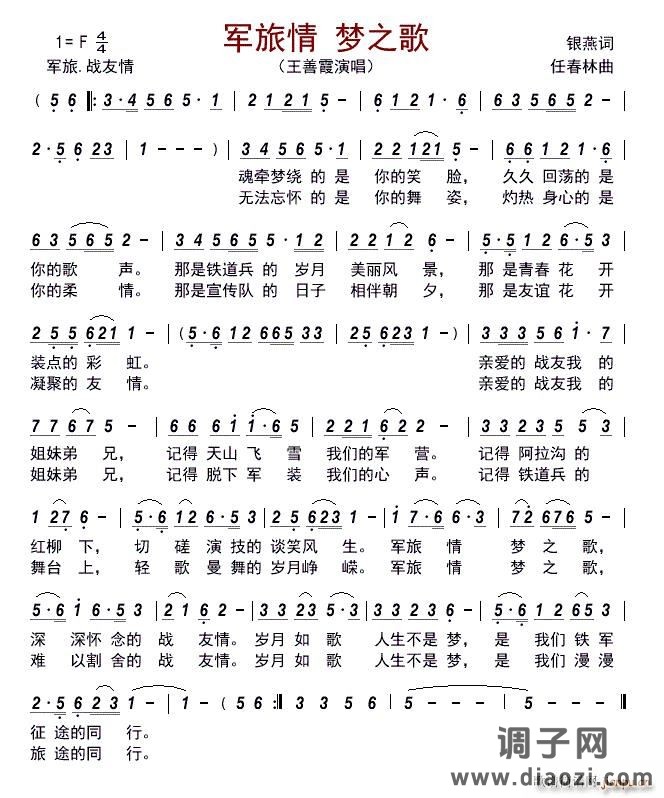 军旅情 梦之歌
1= F 4/4
银燕词
军旅.战友情
（王善霞演唱）
任春林曲
( 5 6 ‖: 3·4 5 6 5 1·5 | 2 1 2 1 5 - | 6 1 2 1·6 | 6 3 5 6 5 2 |
2·5 6 2 3 | 1 - - - ) | 3 4 5 6 5·1 | 2 2 1 2 1 5 - | 6 6 1 2 1·6 |
魂牵梦绕 的 是 你的 笑 脸， 久久 回荡的 是
无法忘怀 的 是 你的 舞 姿， 灼热 身心的 是
6 3 5 6 5 2 - | 3 4 5 6 5·1 2 | 2 2 1 2 6 - | 5·5 1 2 6·5 3 |
你的歌 声。 那是铁道兵 的 岁月 美丽风 景， 那 是青春 花 开
你的柔 情。 那是宣传队 的 日子 相伴朝 夕， 那 是友谊 花 开
2 5 5 6 2 1 1 - | (5·6 1 2 1 2 6 6 5 3 3 | 2 5 6 2 3 1 - ) | 3 3 3 5 6 i·7 |
装点的 彩 虹。 亲爱的 战友我 的
凝聚的 友 情。 亲爱的 战友我 的
7 7 6 7 5 - | 6 6 6 i i·6 5 | 2 2 1 6 2 2 - | 3 3 2 3 5 5 3 |
姐妹弟 兄， 记得 天山 飞 雪 我们的军 营。 记得 阿拉沟 的
姐妹弟 兄， 记得 脱下 军 装 我们的心 声。 记得 铁道兵 的
1 2 7 6 - | 5·6 1 2 6 5 3 | 2 5 6 2 3 1 - | i 7·6 6 - | 7 2 6 7 6 5 - |
红柳 下， 切 磋 演 技的 谈笑风 生。 军旅 情 梦 之 歌，
舞台 上， 轻 歌 曼 舞的 岁月峥 嵘。 军旅 情 梦 之 歌，
5·6 1 3 5·6 | 2 1 6 1 2 - | 3 3 2 3 5 - | 3 3 2 1 2 6 - | 5·5 1 2 3 5 |
深 深怀 念的 战 友情。 岁月 如 歌 人生不是 梦， 是 我们 铁 军
难 以割 舍的 战 友情。 岁月 如 歌 人生不是 梦， 是 我们 漫 漫
2·5 6 2 3 | 1 - 1 - | ( 5 6 :‖ 3 3 3 5 6 | 5 - - - | 5 - - - ‖
征 途的同 行。
旅 途的同 行。
调子网
www.diaozi.com